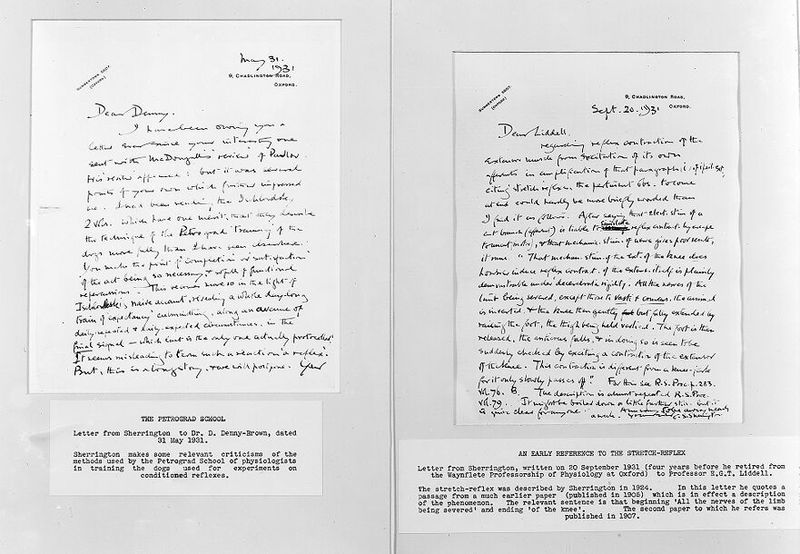 May 31.
1931
9, CHADLINGTON ROAD,
OXFORD.
Dear Denny.
I have been owing you a
letter ever since your interesting one
sent with McDougall's review of Pavlov.
His review : but it was several
points of your own which further impressed
me. I had been reading the
2 vols. which have one merit, that they describe
the technique of the Petrograd 'training' of the
dogs more fully than I have seen described.
You make the point of completion or satisfaction
of the act being so necessary, & of functional
repercussions. This seems more so in the light of
naive account, revealing a whole daylong
train of 'expectancy' culminating, along an avenue of
daily-repeated & daily expected circumstances, in the
final signal — which last is the only one actually protocolled.
It seems misleading to term such a reaction a 'reflex'.
But, this is a long story, & we will postpone. Yrs
THE PETROGRAD SCHOOL
Letter from Sherrington to Dr. D. Denny-Brown, dated
31 May 1931.
Sherrington makes some relevant criticisms of the
methods used by the Petrograd School of physiologists
in training the dogs used for experiments on
conditioned reflexes.
9, CHADLINGTON ROAD,
OXFORD.
Sept. 20. 1931
Dear Liddell,
regarding reflex contraction of the
extensor muscle from excitation of its own
afferents in amplification of that paragraph
citing stretch reflex. the pertinent obs. to come
at end could hardly be more briefly worded than
I find it as follows. After saying that elect. stim. of a
cut branch (afferent) is liable to reflex contract. by escape
to uncut motor, & that mechan. stim. of nerve gives poor results,
it runs. "That mechan. stim. of the ext. of the knee does
however induce reflex contract. of the extensor itself is plainly
demonstrable under decerebrate rigidity. All the nerves of the
limb being severed, except those to vasti & crureus, the animal
is inverted & the knee then gently but fully extended by
raising the foot, the thigh being held vertical. The foot is then
released, the onfurther falls, & in doing so is seen to be
suddenly checked by exciting a contraction of the extensor
of the knee. This contraction is different from a knee-jerk
for it only slowly passes off." For this see R.S. Proc. p. 283.
vol. 76. B. The description is almost repeated R.S. Proc.
vol. 79. It might be boiled down a little further still. but it
is quite clear for anyone.
C. S. Sherrington
AN EARLY REFERENCE TO THE STRETCH-REFLEX
Letter from Sherrington, written on 20 September 1931 (four years before he retired from
the Waynflete Professorship of Physiology at Oxford) to Professor E.G.T. Liddell.
The stretch-reflex was described by Sherrington in 1924. In this letter he quotes a
passage from a much earlier paper (published in 1905) which is in effect a description
of the phenomenon. The relevant sentence is that beginning 'All the nerves of the limb
being severed' and ending 'of the knee'. The second paper to which he refers was
published in 1907.